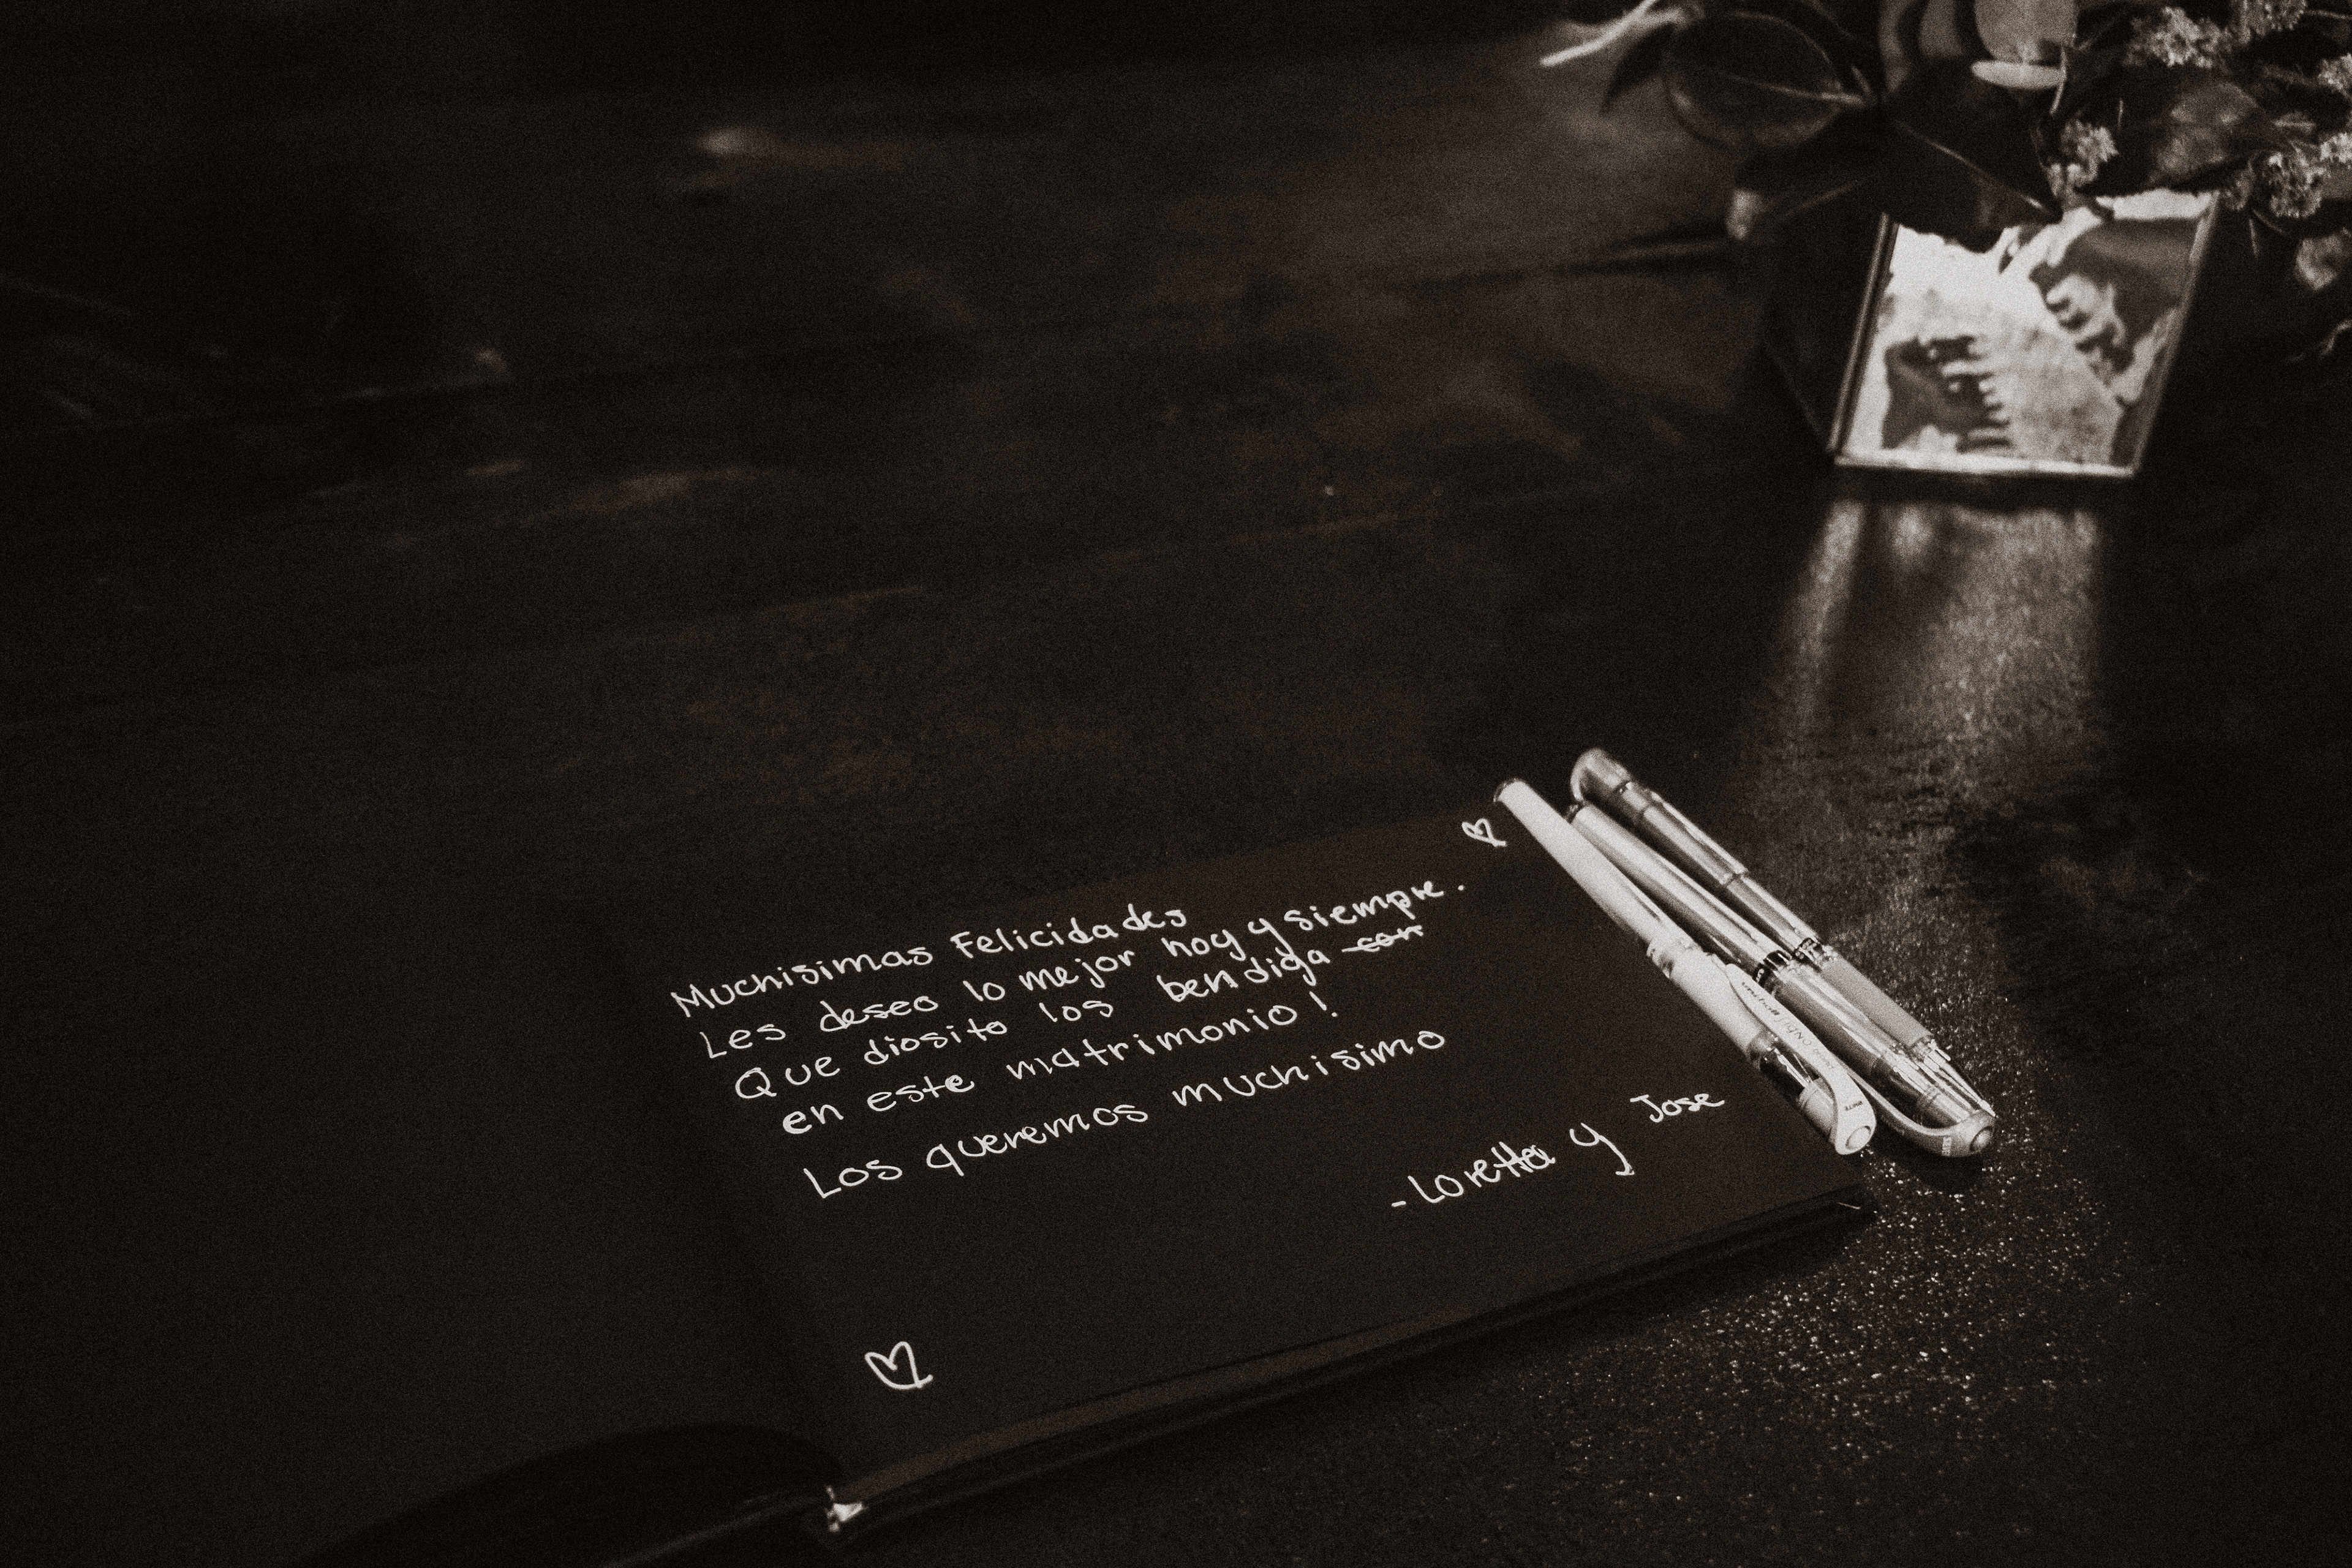 Muchisimas Felicidades
Les deseo lo mejor hoy y siempre.
Que diosito los bendiga con
en este matrimonio!
Los queremos muchisimo
- Loretta y Jose